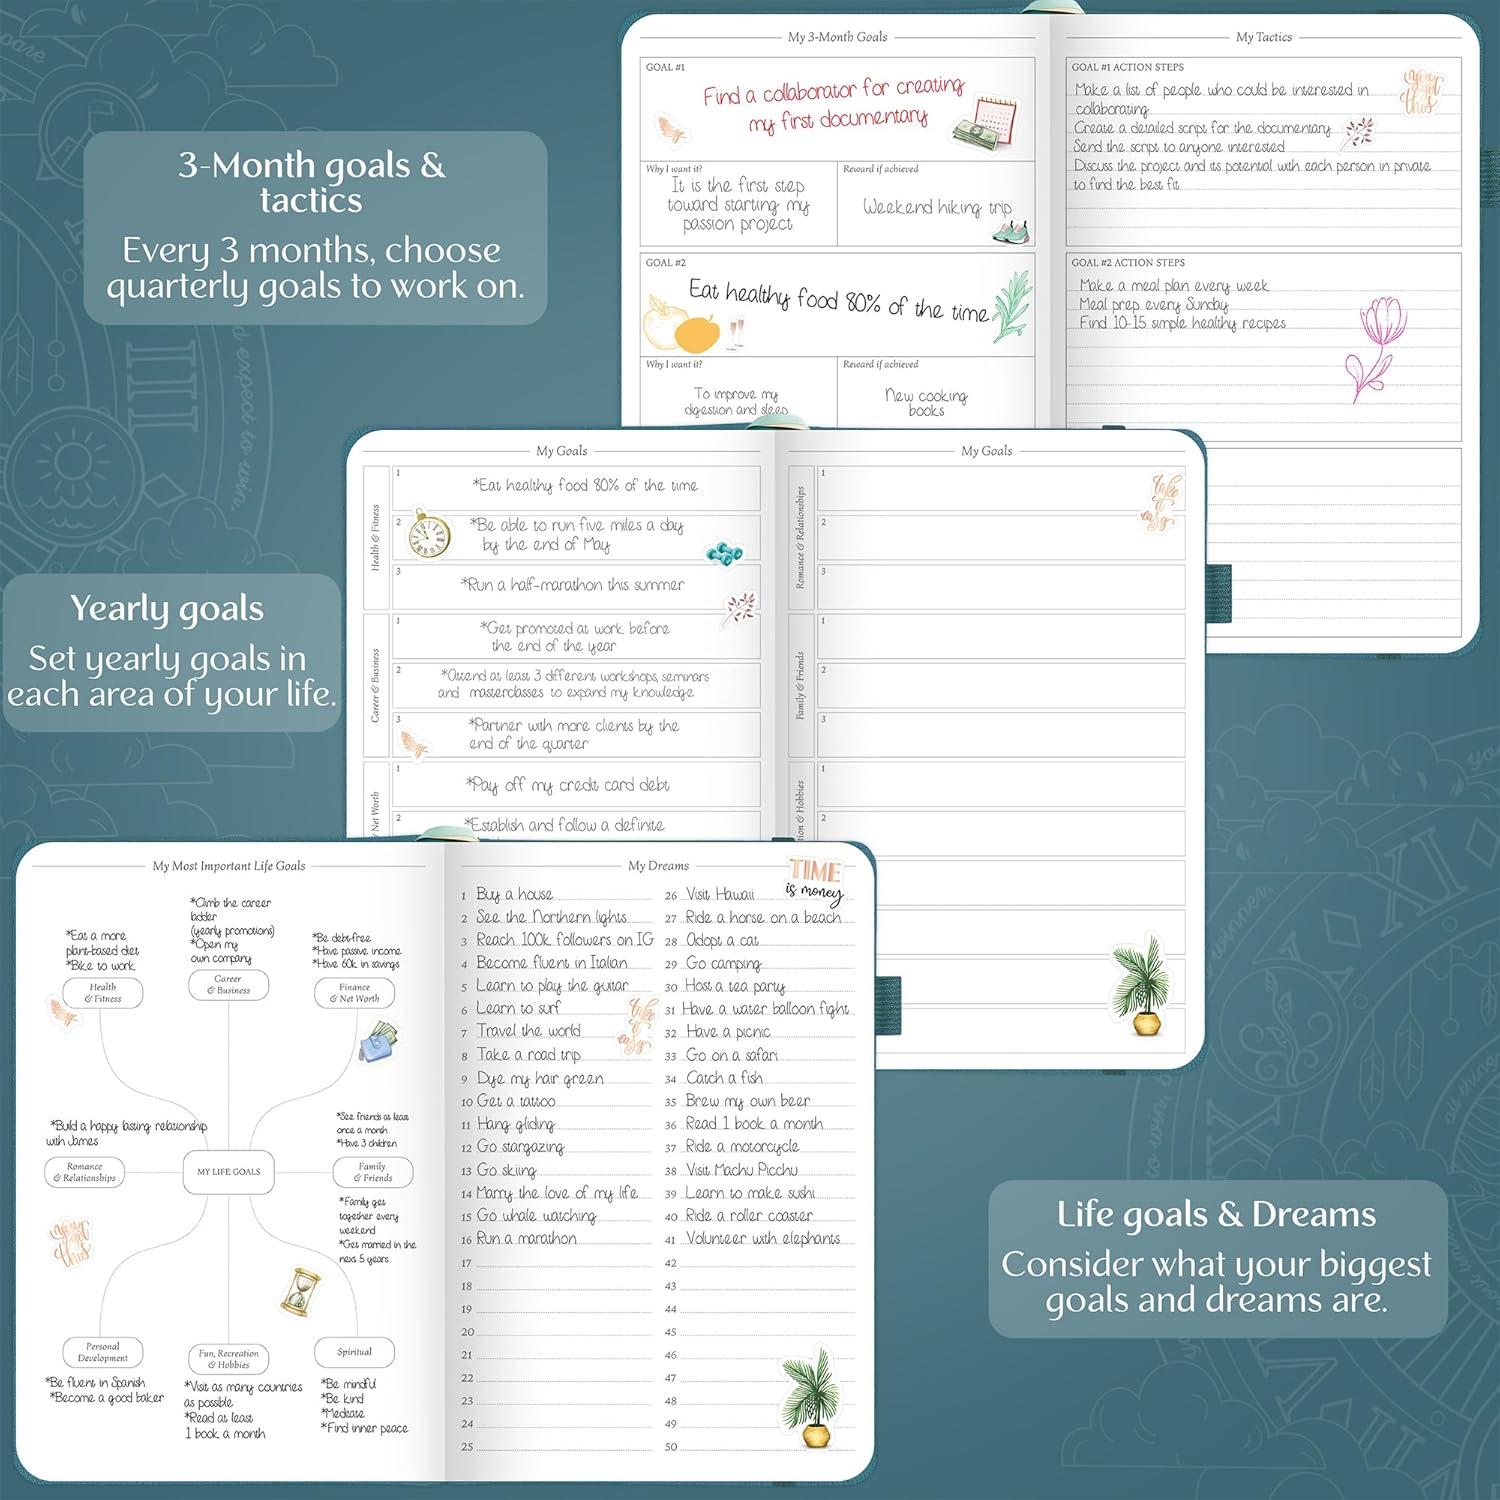 3-Month goals &
tactics
Every 3 months, choose
quarterly goals to work on.
My 3-Month Goals
GOAL #1
Find a collaborator for creating
my first documentary
Why I want it?
It is the first step
toward starting my
passion project
Reward if achieved
Weekend hiking trip
GOAL #2
Eat healthy food 80% of the time
Why I want it?
To improve my
digestion and sleep
Reward if achieved
New cooking
books
My Tactics
GOAL #1 ACTION STEPS
Make a list of people who could be interested in
collaborating
Create a detailed script for the documentary
Send the script to anyone interested
Discuss the project and its potential with each person in private
to find the best fit
you
got
this
GOAL #2 ACTION STEPS
Make a meal plan every week
Meal prep every Sunday
Find 10-15 simple healthy recipes
Yearly goals
Set yearly goals in
each area of your life.
My Goals
Health & Fitness
1
*Eat healthy food 80% of the time
2
*Be able to run five miles a day
by the end of May
3
*Run a half-marathon this summer
Career & Business
1
*Get promoted at work before
the end of the year
2
*Attend at least 3 different workshops, seminars
and masterclasses to expand my knowledge
3
*Partner with more clients by the
end of the quarter
Net Worth
1
*Pay off my credit card debt
2
*Establish and follow a definite
My Goals
Romance & Relationships
1
2
3
take
it
easy
Family & Friends
1
2
3
tion & Hobbies
1
2
Life goals & Dreams
Consider what your biggest
goals and dreams are.
My Most Important Life Goals
*Eat a more
plant-based diet
*Bike to work
Health
& Fitness
*Climb the career
ladder
(yearly promotions)
*Open my
own company
Career
& Business
*Be debt-free
*Have passive income
*Have 60k in savings
Finance
& Net Worth
*Build a happy lasting relationship
with James
Romance
& Relationships
MY LIFE GOALS
*See friends at least
once a month
*Have 3 children
Family
& Friends
*Family get
together every
weekend
*Get married in the
next 5 years
you
got
this
Personal
Development
*Be fluent in Spanish
*Become a good baker
Fun, Recreation
& Hobbies
*Visit as many countries
as possible
*Read at least
1 book a month
Spiritual
*Be mindful
*Be kind
*Meditate
*Find inner peace
My Dreams
TIME
is money
1 Buy a house
2 See the Northern lights
3 Reach 100k followers on IG
4 Become fluent in Italian
5 Learn to play the guitar
6 Learn to surf
7 Travel the world
8 Take a road trip
9 Dye my hair green
10 Get a tattoo
11 Hang gliding
12 Go stargazing
13 Go skiing
14 Marry the love of my life
15 Go whale watching
16 Run a marathon
17
18
19
20
21
22
23
24
25
take
it
easy
26 Visit Hawaii
27 Ride a horse on a beach
28 Adopt a cat
29 Go camping
30 Host a tea party
31 Have a water balloon fight
32 Have a picnic
33 Go on a safari
34 Catch a fish
35 Brew my own beer
36 Read 1 book a month
37 Ride a motorcycle
38 Visit Machu Picchu
39 Learn to make sushi
40 Ride a roller coaster
41 Volunteer with elephants
42
43
44
45
46
47
48
49
50